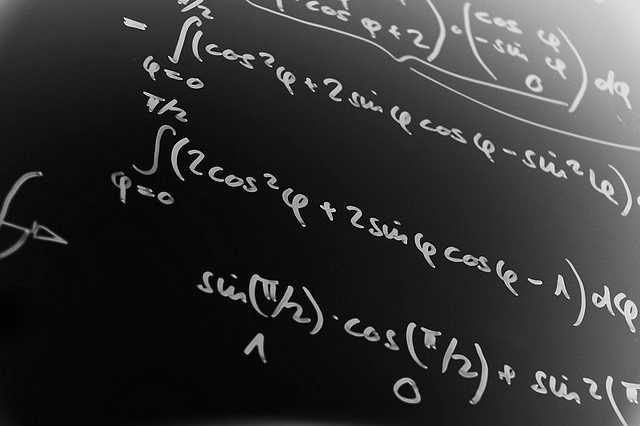 cos φ + 2) · (cos φ -sin φ 0) dφ
= ∫ φ=0 π/2 (cos²φ + 2 sin φ cos φ - sin²φ)
∫ φ=0 π/2 (2cos²φ + 2 sin φ cos φ - 1) dφ
sin(π/2) · cos(π/2) + sin²(π
1 0